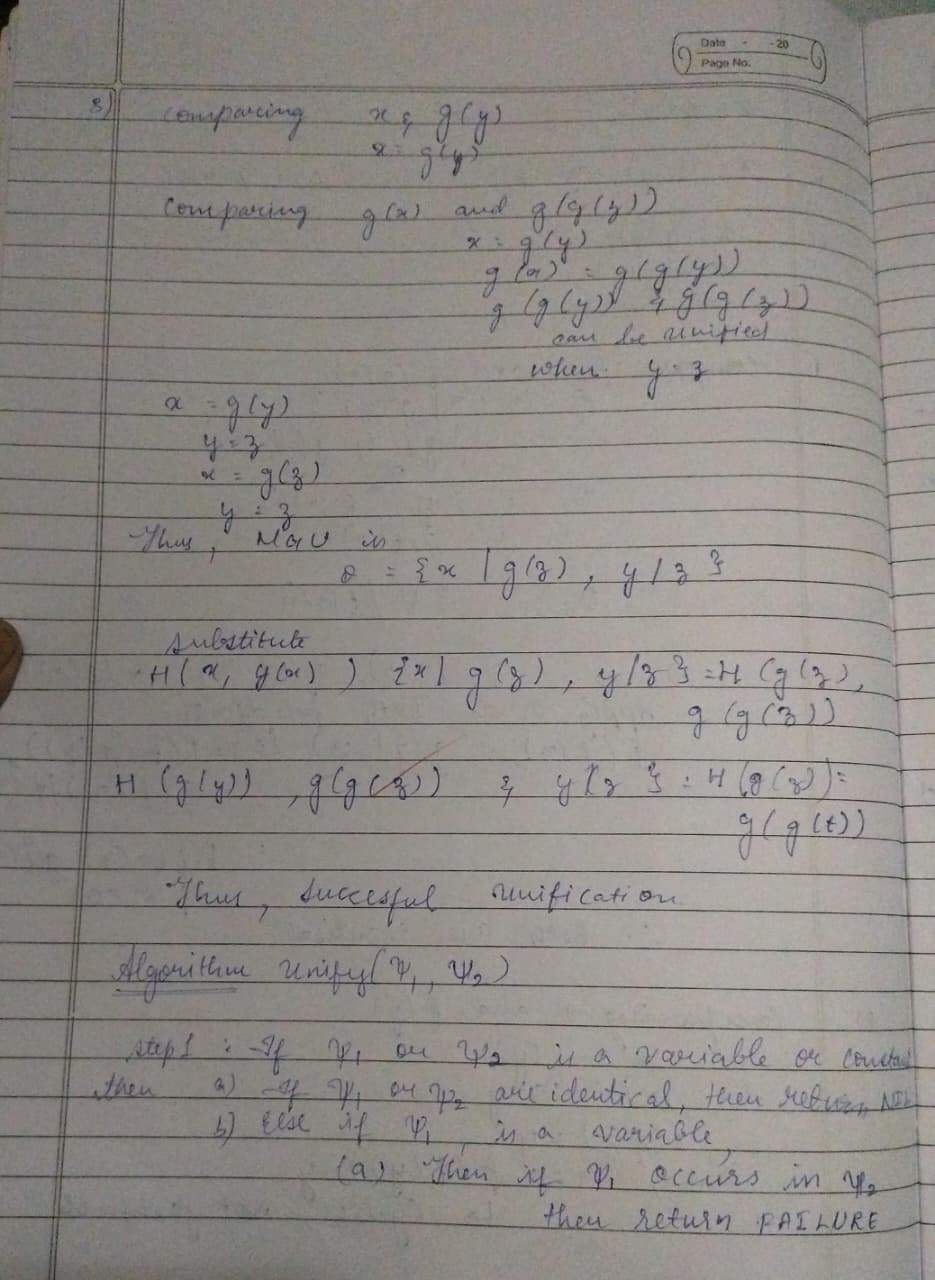 Date - - 20
Page No.
3)
comparing x & g(y)
x = g(y)
comparing g(x) and g(g(z))
x = g(y)
g(x) = g(g(y))
g(g(y)) & g(g(z))
can be unified
when y = z
x = g(y)
y = z
x = g(z)
y = z
Thus, MGU is
θ = {x | g(z), y / z}
substitute
H(x, g(x)) {x | g(z), y / z} = H(g(z),
g(g(z))
H(g(y)), g(g(z)) & y / z} = H(g(z)) =
g(g(t))
Thus, succesful unification
Algorithm Unify(Ψ₁, Ψ₂)
step1 : If Ψ₁ or Ψ₂ is a variable or constant
then a) If Ψ₁ or Ψ₂ are identical, then return NIL
b) Else if Ψ₁ is a variable,
(a) Then if Ψ₁ occurs in Ψ₂
then return FAILURE